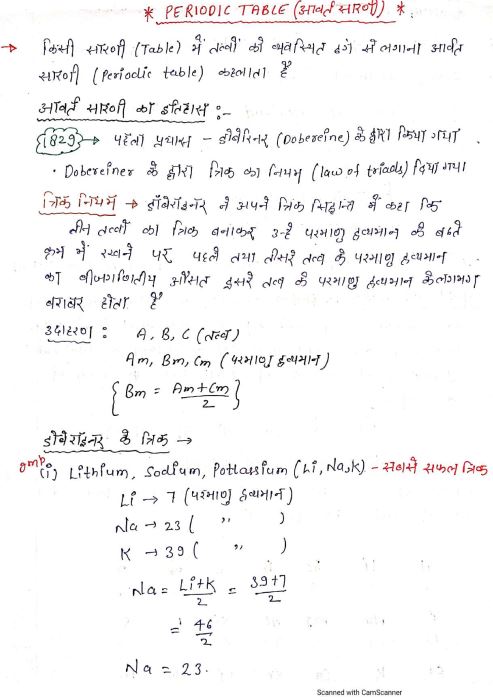 * PERIODIC TABLE (आवर्त सारणी) *
→ किसी सारणी (Table) में तत्वों को व्यवस्थित ढंग से लगाना आर्वत
सारणी (Periodic table) कहलाता है
आवर्त सारणी का इतिहास :-
1829 → पहला प्रयास - डोबेरिनर (Dobereine) के द्वारा किया गया
• Dobereiner के द्वारा त्रिक का नियम (law of triads) दिया गया
त्रिक नियम → डॉबेराइनर ने अपने त्रिक सिद्धान्त में कहा कि
तीन तत्वों का त्रिक बनाकर उन्हे परमाणु द्रव्यमान के बढते
क्रम में रखने पर पहले तथा तीसरे तत्व के परमाणु द्रव्यमान
का बीजगणितीय औसत दूसरे तत्व के परमाणु द्रव्यमान के लगभग
बराबर होता है
उदाहरण : A, B, C (तत्व)
Am, Bm, Cm (परमाणु द्रव्यमान)
{ Bm = Am+Cm / 2 }
डोबेराइनर के त्रिक →
Imp (i) Lithium, Sodium, Potlassium (Li, Na, K) - सबसे सफल त्रिक
Li → 7 (परमाणु द्रव्यमान)
Na → 23 ( ,, )
K → 39 ( ,, )
Na = Li+K / 2 = 39+7 / 2
= 46 / 2
Na = 23.
Scanned with CamScanner